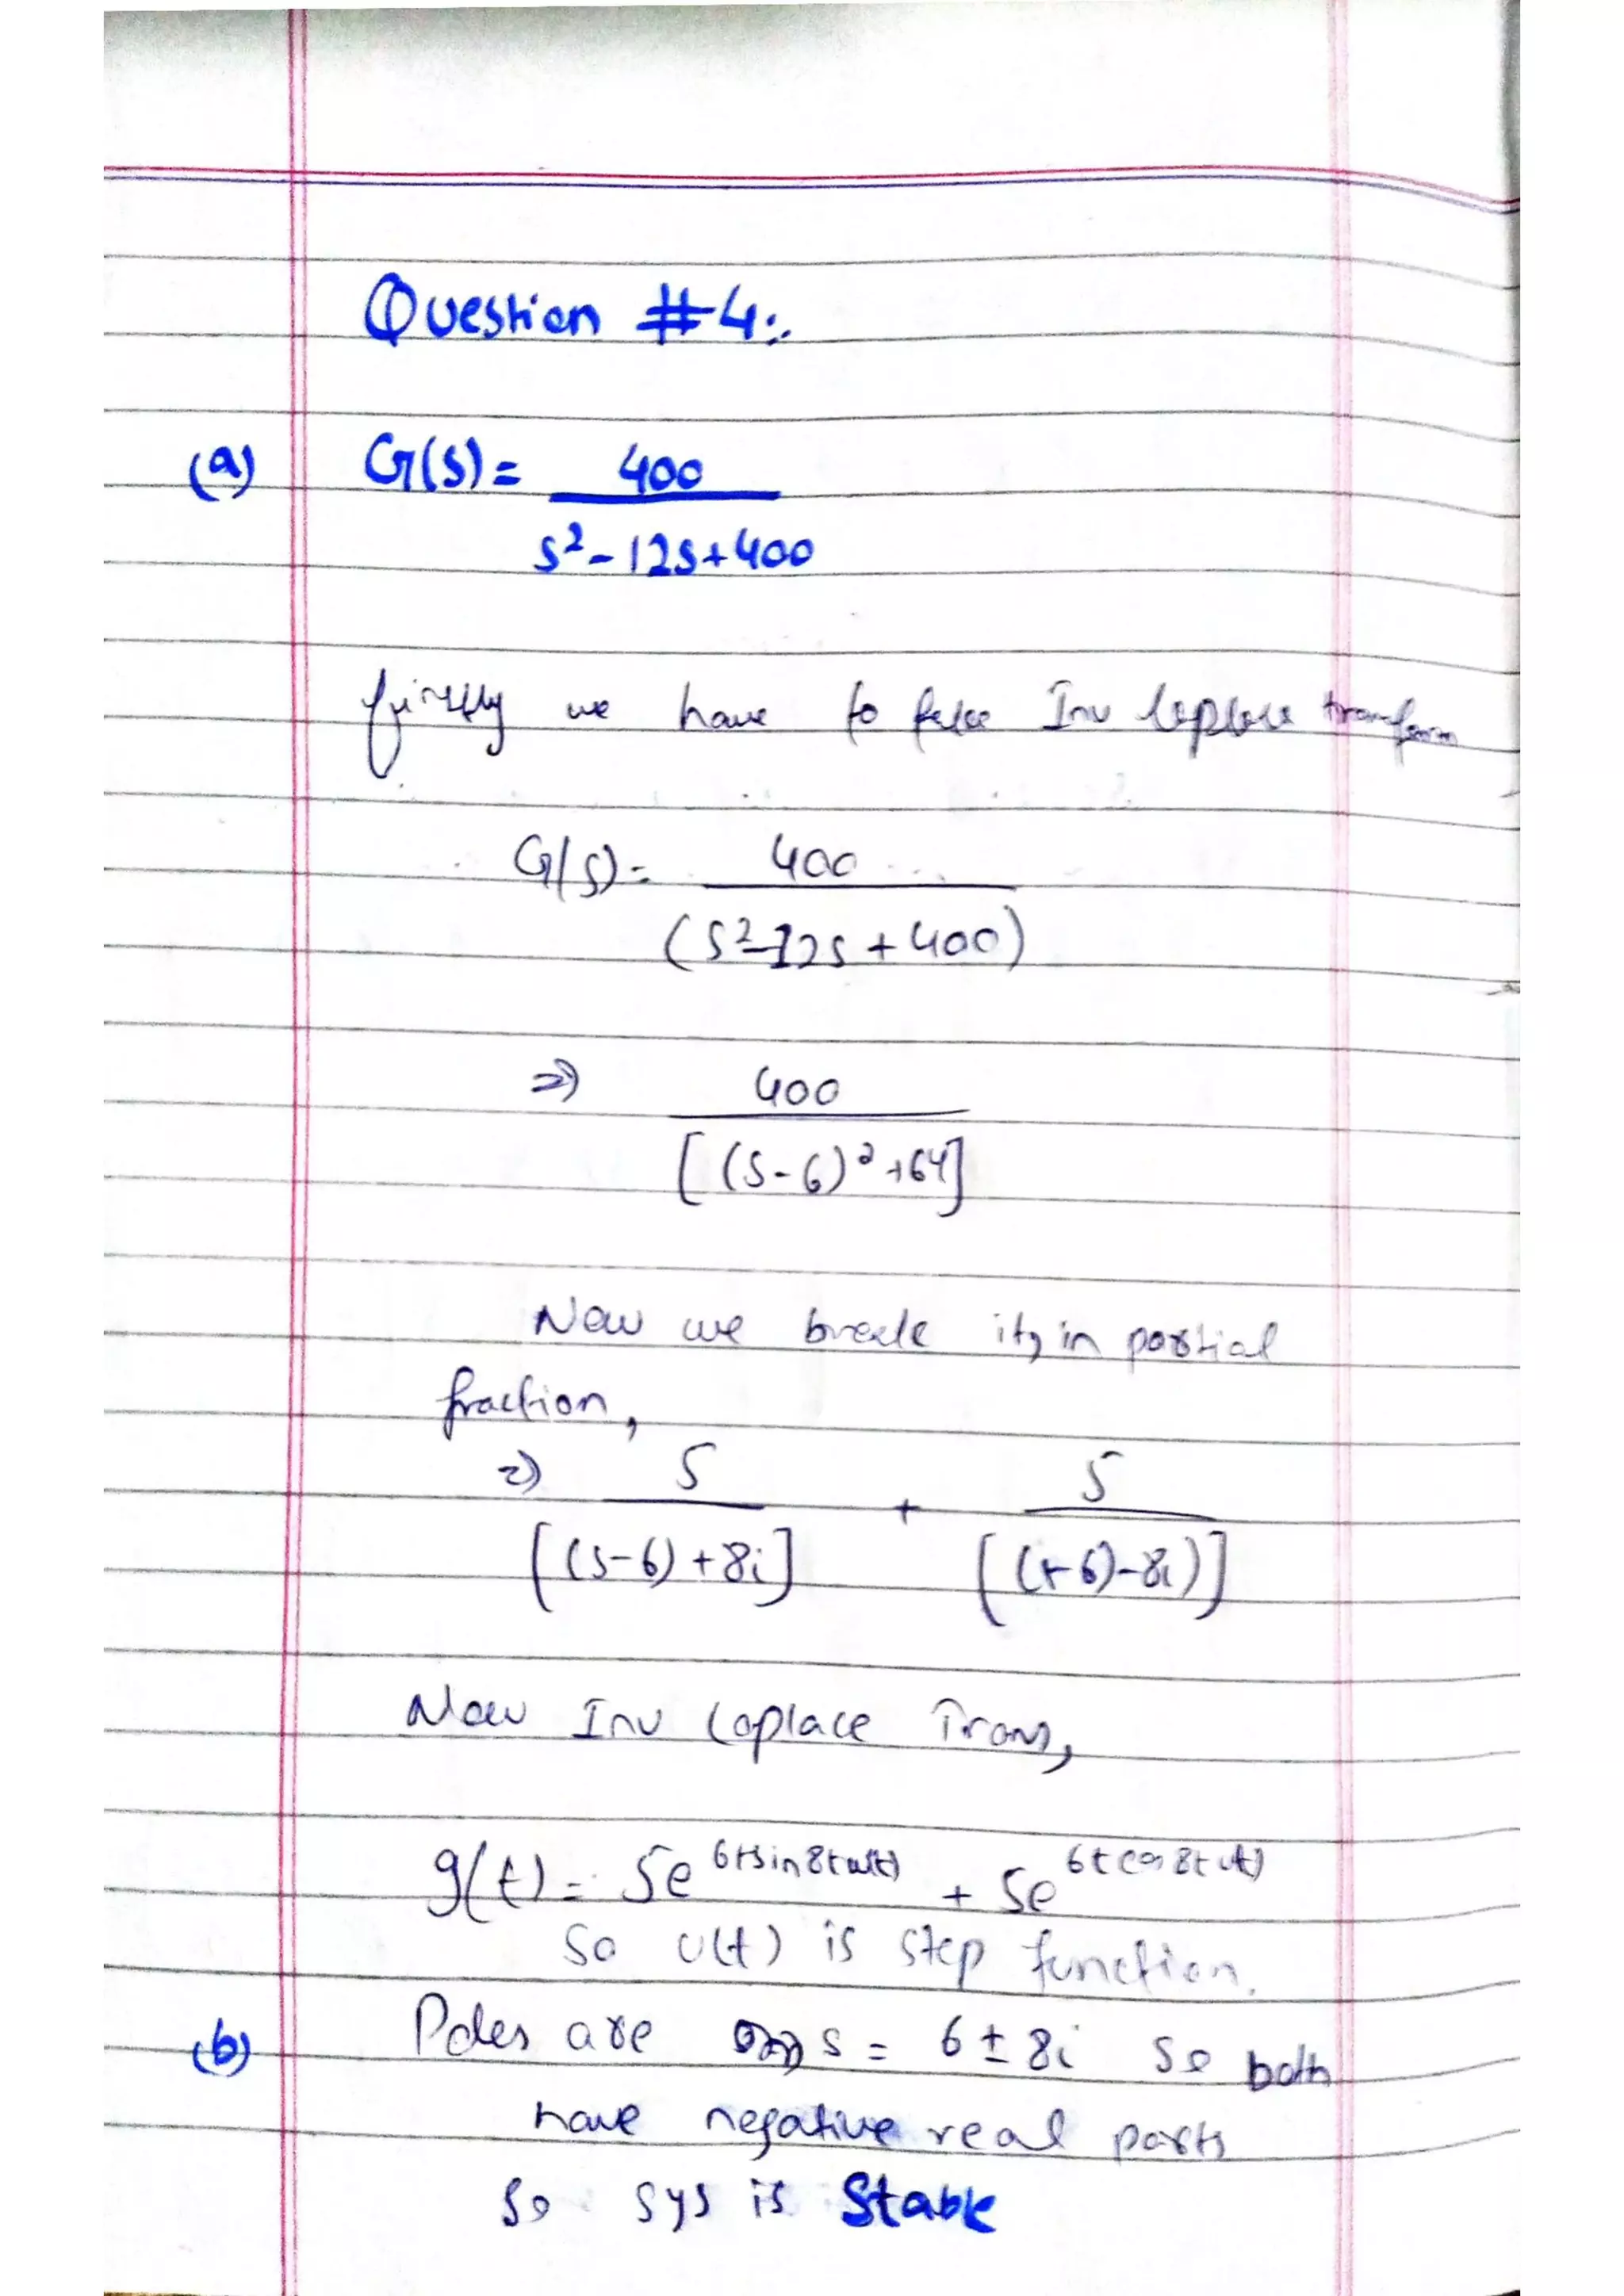 Question #4:.
(a) G(s)= 400
s²-12s+400
firstly we have to take Inv laplace transform
G(s)= 400
(s²-12s+400)
=> 400
[(s-6)²+64]
Now we break it, in partial
fraction,
=> 5 + 5
[(s-6)+8i] [(s-6)-8i)]
Now Inv Laplace Trans,
g(t)= 5e^6tsin8tu(t) + 5e^6tcos8tu(t)
So u(t) is step function.
(b) Poles are s = 6±8i So both
have negative real parts
So sys is Stable